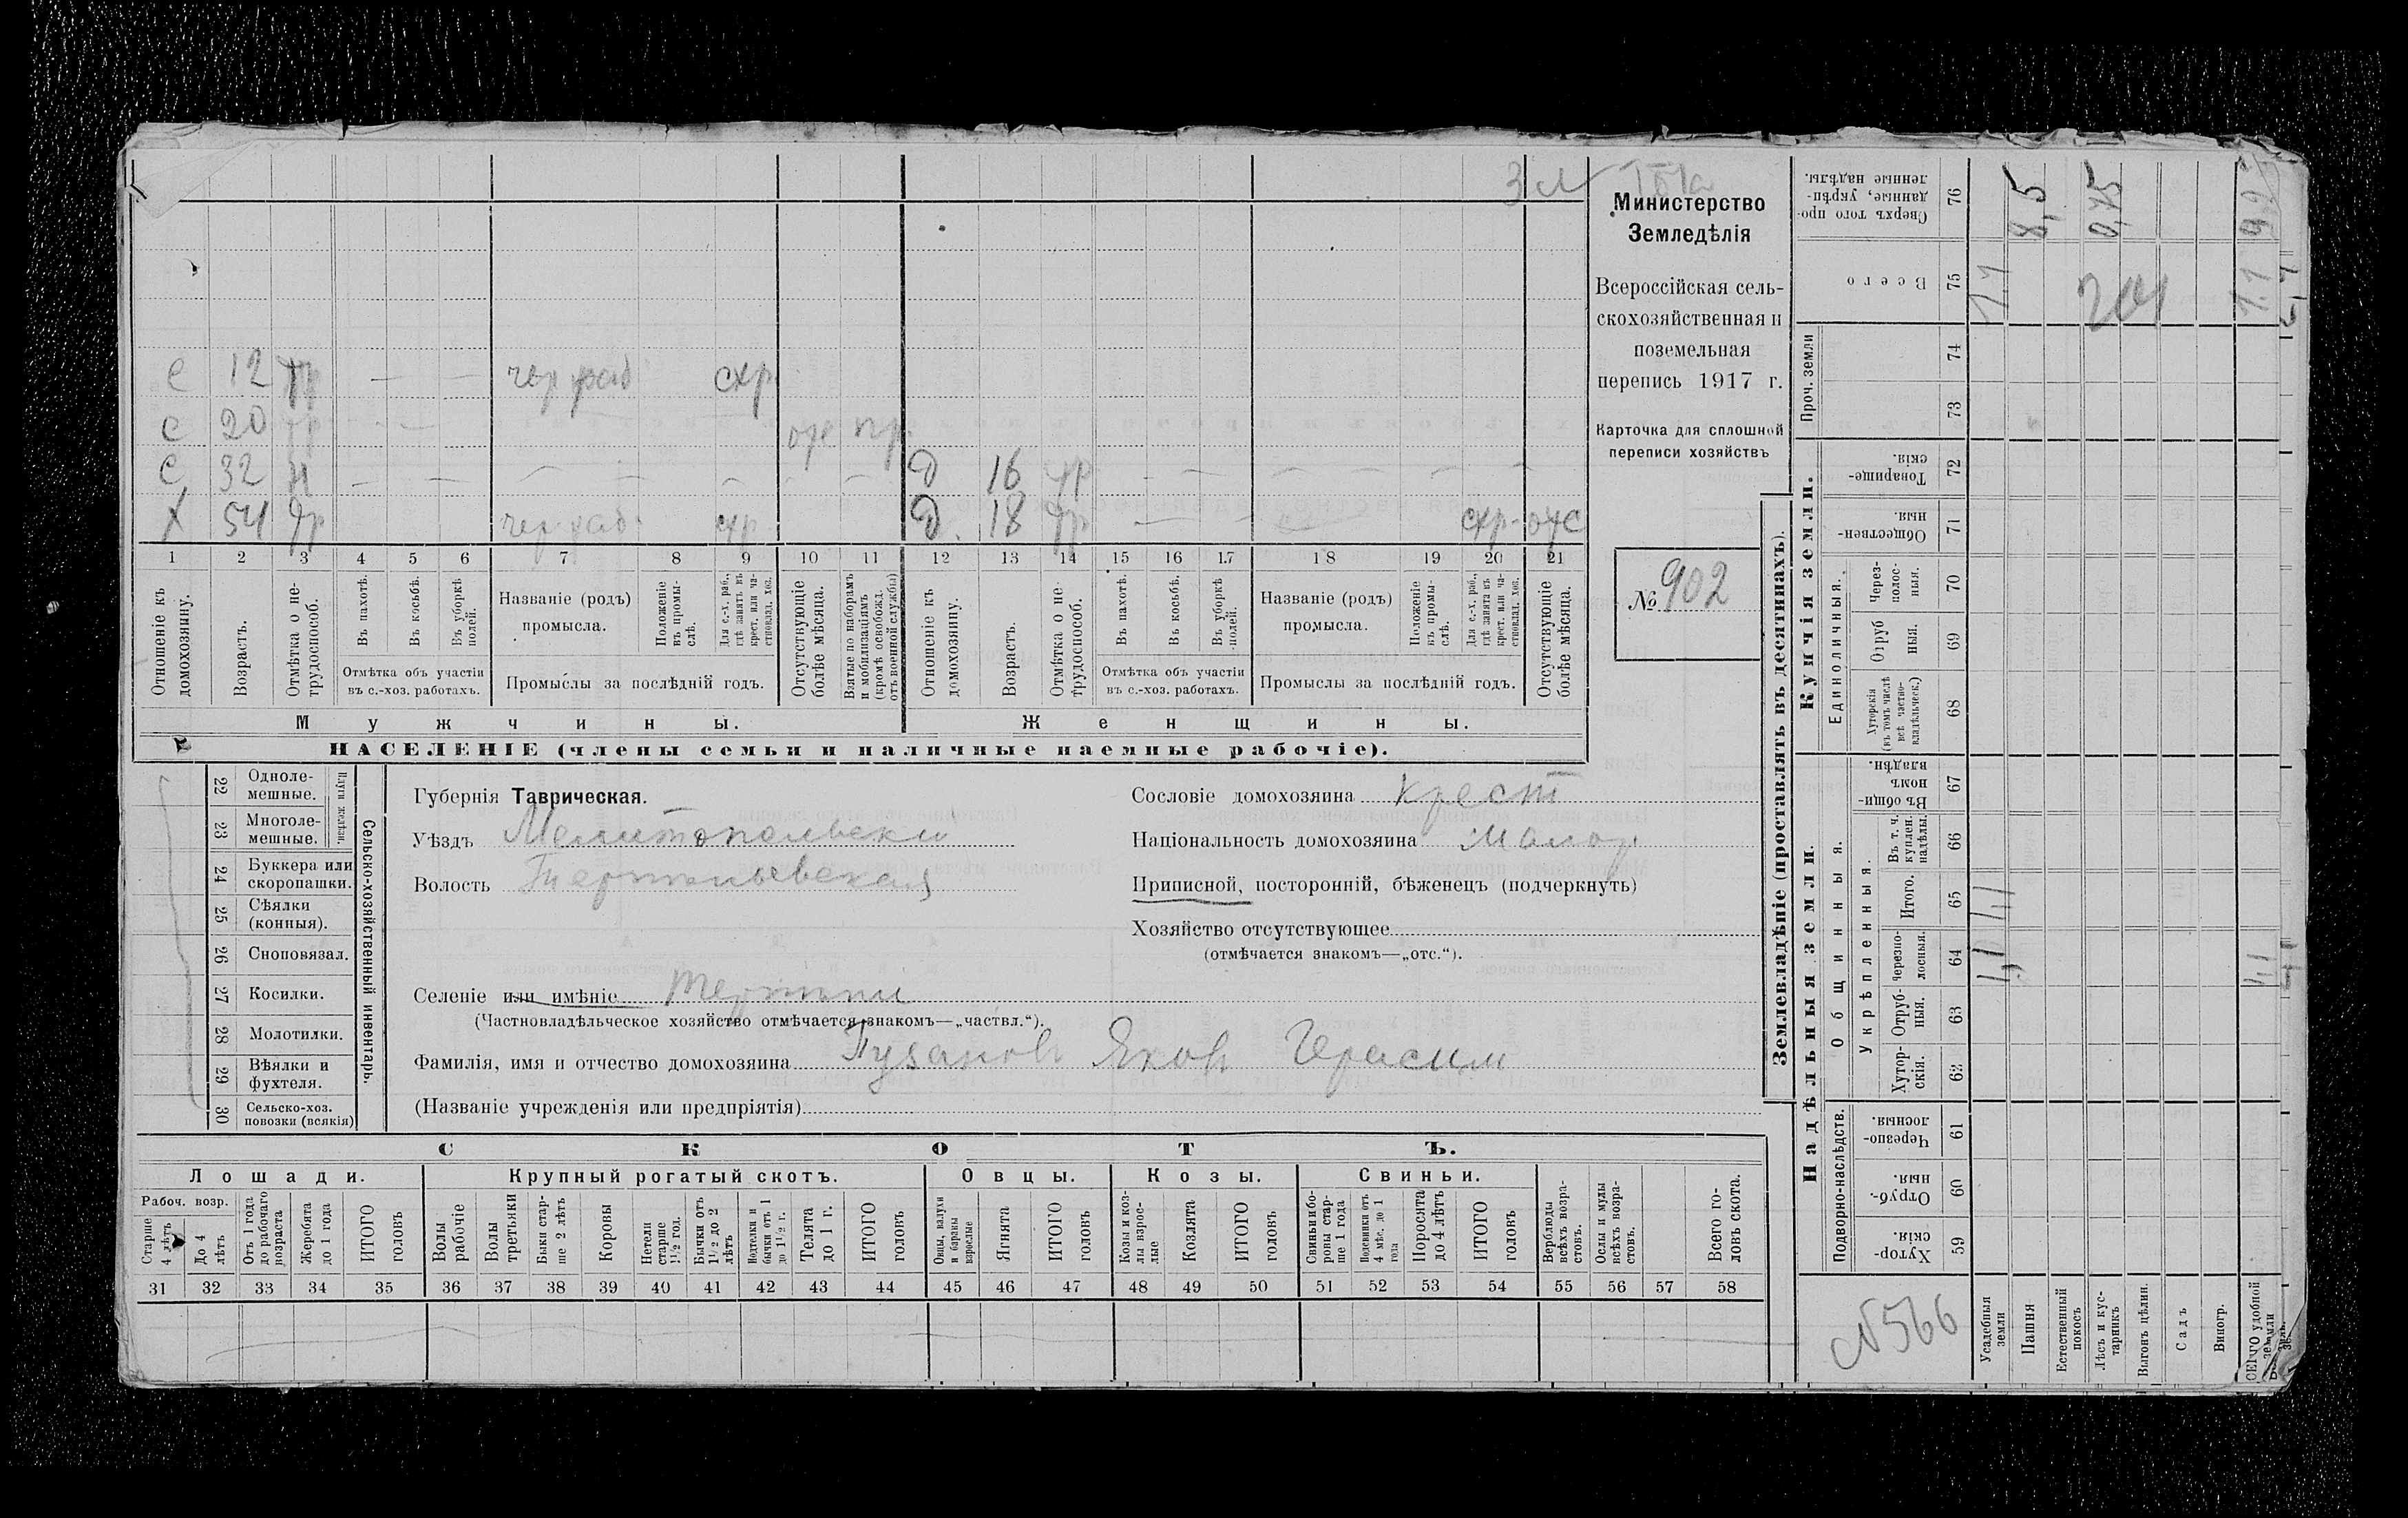 Министерство
Земледѣлія
Всероссійская сель-
скохозяйственная и
поземельная
перепись 1917 г.
Карточка для сплошной
переписи хозяйствъ
№ 902
с 12 тр — — чер раб схр
с 20 — — отс
с 32 н — — — — — — — — Д 16 — — — — —
х 54 чер раб схр Д. 18 — — схр- отс
1 2 3 4 5 6 7 8 9 10 11 12 13 14 15 16 17 18 19 20 21
Отношеніе къ домохозяину.
Возрастъ.
Отмѣтка о не-трудоспособ.
Въ пахотѣ.
Въ косьбѣ.
Въ уборкѣ полей.
Отмѣтка объ участіи въ с.-хоз. работахъ.
Названіе (родъ) промысла.
Положеніе въ промы-слѣ.
Для с.-х. раб., гдѣ занятъ въ крест. или ча-стновлад. хоз.
Промыслы за послѣдній годъ.
Отсутствующіе болѣе мѣсяца.
Взятые по наборамъ и мобилизаціямъ (кромѣ освобожд. отъ военной службы)
Отношеніе къ домохозяину.
Возрастъ.
Отмѣтка о не-трудоспособ.
Въ пахотѣ.
Въ косьбѣ.
Въ уборкѣ полей.
Отмѣтка объ участіи въ с.-хоз. работахъ.
Названіе (родъ) промысла.
Положеніе въ промы-слѣ.
Для с.-х. раб., гдѣ занята въ крест. или ча-стновлад. хоз.
Промыслы за послѣдній годъ.
Отсутствующіе болѣе мѣсяца.
Мужчины. Женщины.
НАСЕЛЕНІЕ (члены семьи и наличные наемные рабочіе).
Сельско-хозяйственный инвентарь.
Плуги желѣзн.
22 Одноле-мешные.
23 Многоле-мешные.
24 Буккера или скоропашки.
25 Сѣялки (конныя).
26 Сноповязал.
27 Косилки.
28 Молотилки.
29 Вѣялки и фухтеля.
30 Сельско-хоз. повозки (всякія)
Губернія Таврическая.
Уѣздъ Мелитопольски
Волость Терпеньевская
Селеніе или имѣніе Терпени
(Частновладѣльческое хозяйство отмѣчается знакомъ—„частвл.“).
Фамилія, имя и отчество домохозяина Пузановъ Яковъ Герасим
(Названіе учрежденія или предпріятія)
Сословіе домохозяина крест
Національность домохозяина малор
Приписной, посторонній, бѣженецъ (подчеркнуть)
Хозяйство отсутствующее
(отмѣчается знакомъ—„отс.“).
СКОТЪ.
Лошади. Крупный рогатый скотъ. Овцы. Козы. Свиньи.
Рабоч. возр.
Старше 4 лѣтъ
До 4 лѣтъ
Отъ 1 года до рабочаго возраста
Жеребята до 1 года
ИТОГО головъ
Волы рабочіе
Волы третьяки
Быки стар-ше 2 лѣтъ
Коровы
Нетели старше 1½ год.
Бычки отъ 1½ до 2 лѣтъ
Подтелки и бычки отъ 1 до 1½ г.
Телята до 1 г.
ИТОГО головъ
Овцы, валухи и бараны взрослые
Ягнята
ИТОГО головъ
Козы и коз-лы взрос-лые
Козлята
ИТОГО головъ
Свиньи и бо-ровы стар-ше 1 года
Подсвинки отъ 4 мѣс. до 1 года
Поросята до 4 лѣтъ
ИТОГО головъ
Верблюды всѣхъ возра-стовъ.
Ослы и мулы всѣхъ возра-стовъ.
Всего го-ловъ скота.
31 32 33 34 35 36 37 38 39 40 41 42 43 44 45 46 47 48 49 50 51 52 53 54 55 56 57 58
Землевладѣніе (проставлять въ десятинахъ).
Надѣльныя земли. Купчія земли.
Проч. земли
Подворно-наслѣдств.
Общинныя.
Укрѣпленныя.
Единоличныя.
Сверхъ того про-данные, укрѣп-ленные надѣлы. 76 8,5 0,75
Всего 75 1,1 201 1,1
74
73
Товарище-скія. 72
Обществен-ныя. 71
Через-полос-ныя. 70
Отруб ныя. 69
Хуторскія (въ томъ числѣ всѣ частно-владѣльческ.) 68
Въ общи-номъ владѣн. 67
Въ т. ч. куплен. надѣлы. 66
Итого. 65 1,1
Черезпо-лосныя. 64 1,1 1,1
Отруб-ныя. 63
Хутор-скія. 62
Черезпо-лосныя. 61
Отруб-ныя. 60
Хутор-скія. 59
N 566
Усадебныя земли
Пашня
Естественный покосъ
Лѣсъ и кус-тарникъ
Выгонъ цѣлин.
Садъ
Виногр.
удобной земли